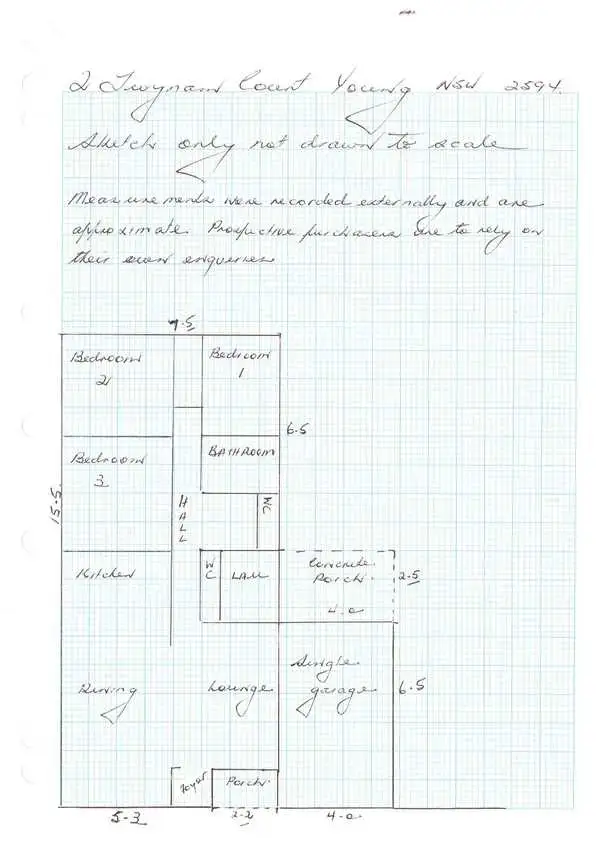 2 Twynam Court Young NSW 2594.
Sketch only not drawn to scale
Measurements were recorded externally and are
approximate. Prospective purchasers are to rely on
their own enquiries
7.5
Bedroom
2
Bedroom
1
6.5
Bedroom
3
BATHROOM
15.5.
HALL
WC
Kitchen
WC
LAU
Concrete
Porch.
2.5
4.0
Dining
Lounge
Single
garage
6.5
Foyer
Porch.
5.3
2.2
4.0